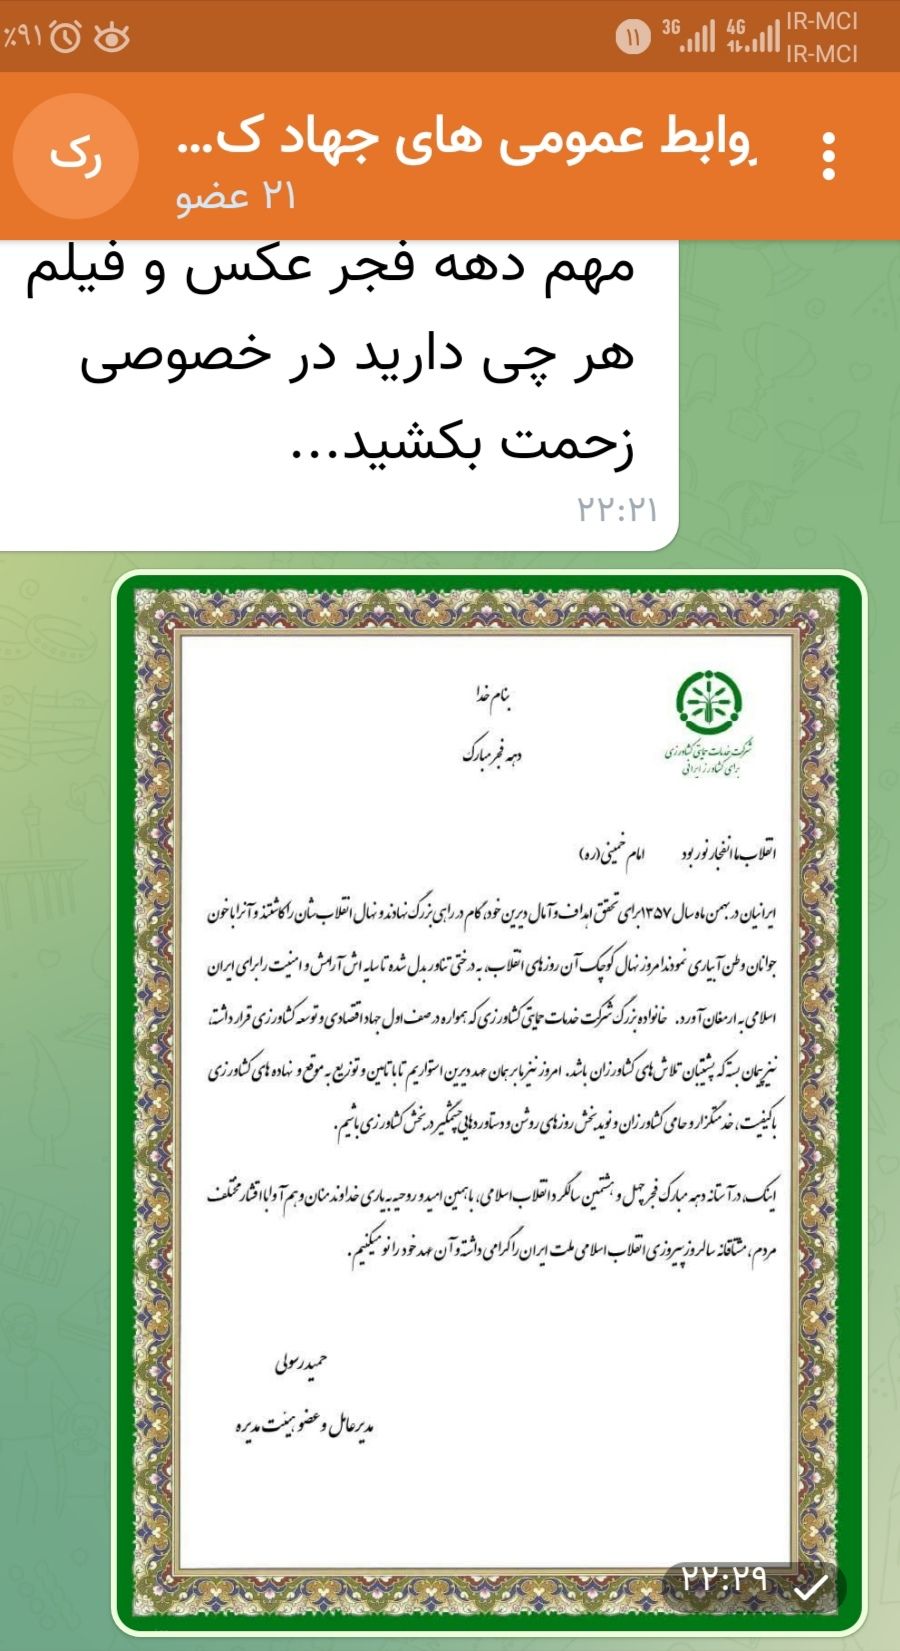 ٪۹۱
۱۱
3G
4G
IR-MCI
IR-MCI
روابط عمومی های جهاد ک...
رک
۲۱ عضو
مهم دهه فجر عکس و فیلم
هر چی دارید در خصوصی
زحمت بکشید...
۲۲:۲۱
بنام خدا
دهه فجر مبارک
شرکت خدمات حمایتی کشاورزی
برای کشاورز ایرانی
انقلاب ما انفجار نور بود امام خمینی (ره)
ایرانیان در بهمن ماه سال ۱۳۵۷ برای تحقق اهداف و آمال دیرین خود، گام در راهی بزرگ نهادند و نهال انقلاب شان را کاشتند و آنرا با خون
جوانان وطن آبیاری نمودند امروز نهال کوچک آن روزهای انقلاب، به درختی تناور بدل شده تا سایه اش آرامش و امنیت را برای ایران
اسلامی به ارمغان آورد. خانواده بزرگ شرکت خدمات حمایتی کشاورزی که همواره در صف اول جهاد اقتصادی و توسعه کشاورزی قرار داشته،
نیز پیمان بسته که پشتیبان تلاش های کشاورزان باشد. امروز نیز ما بر همان عهد دیرین استواریم تا با تامین و توزیع به موقع و نهاده های کشاورزی
با کیفیت، خدمتگزار و حامی کشاورزان و نویدبخش روزهای روشن و دستاوردهایی چشمگیر در بخش کشاورزی باشیم.
اینک، در آستانه دهه مبارک فجر چهل و هشتمین سالگرد انقلاب اسلامی، با همین امید و روحیه به یاری خداوند منان و هم آوا با اقشار مختلف
مردم، مشتاقانه سالروز پیروزی انقلاب اسلامی ملت ایران را گرامی داشته و آن عهد خود را نو میکنیم.
حمید رسولی
مدیرعامل و عضو هیئت مدیره
۲۲:۲۹